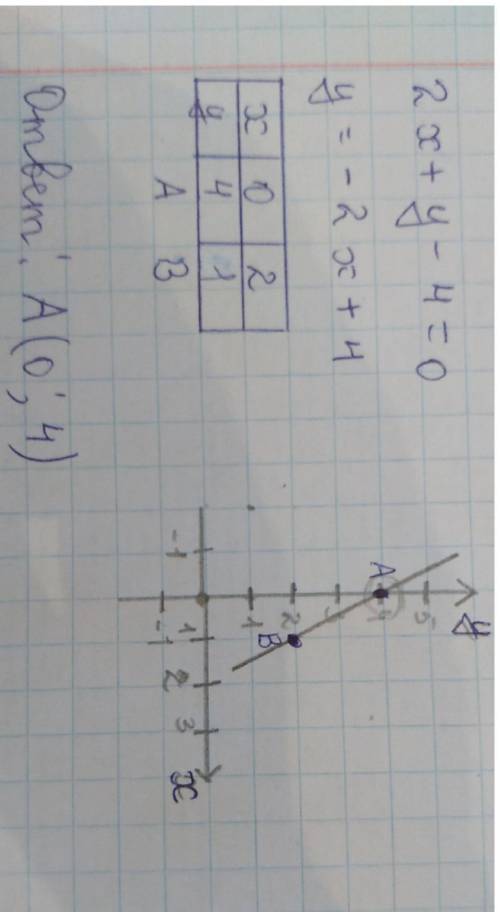 2x + y - 4 = 0
y = -2x + 4
x 0 2
y 4 1
A B
y
5
A 4
2
B
1
-1 1 2 3 x
-1
Ответ: A(0; 4)